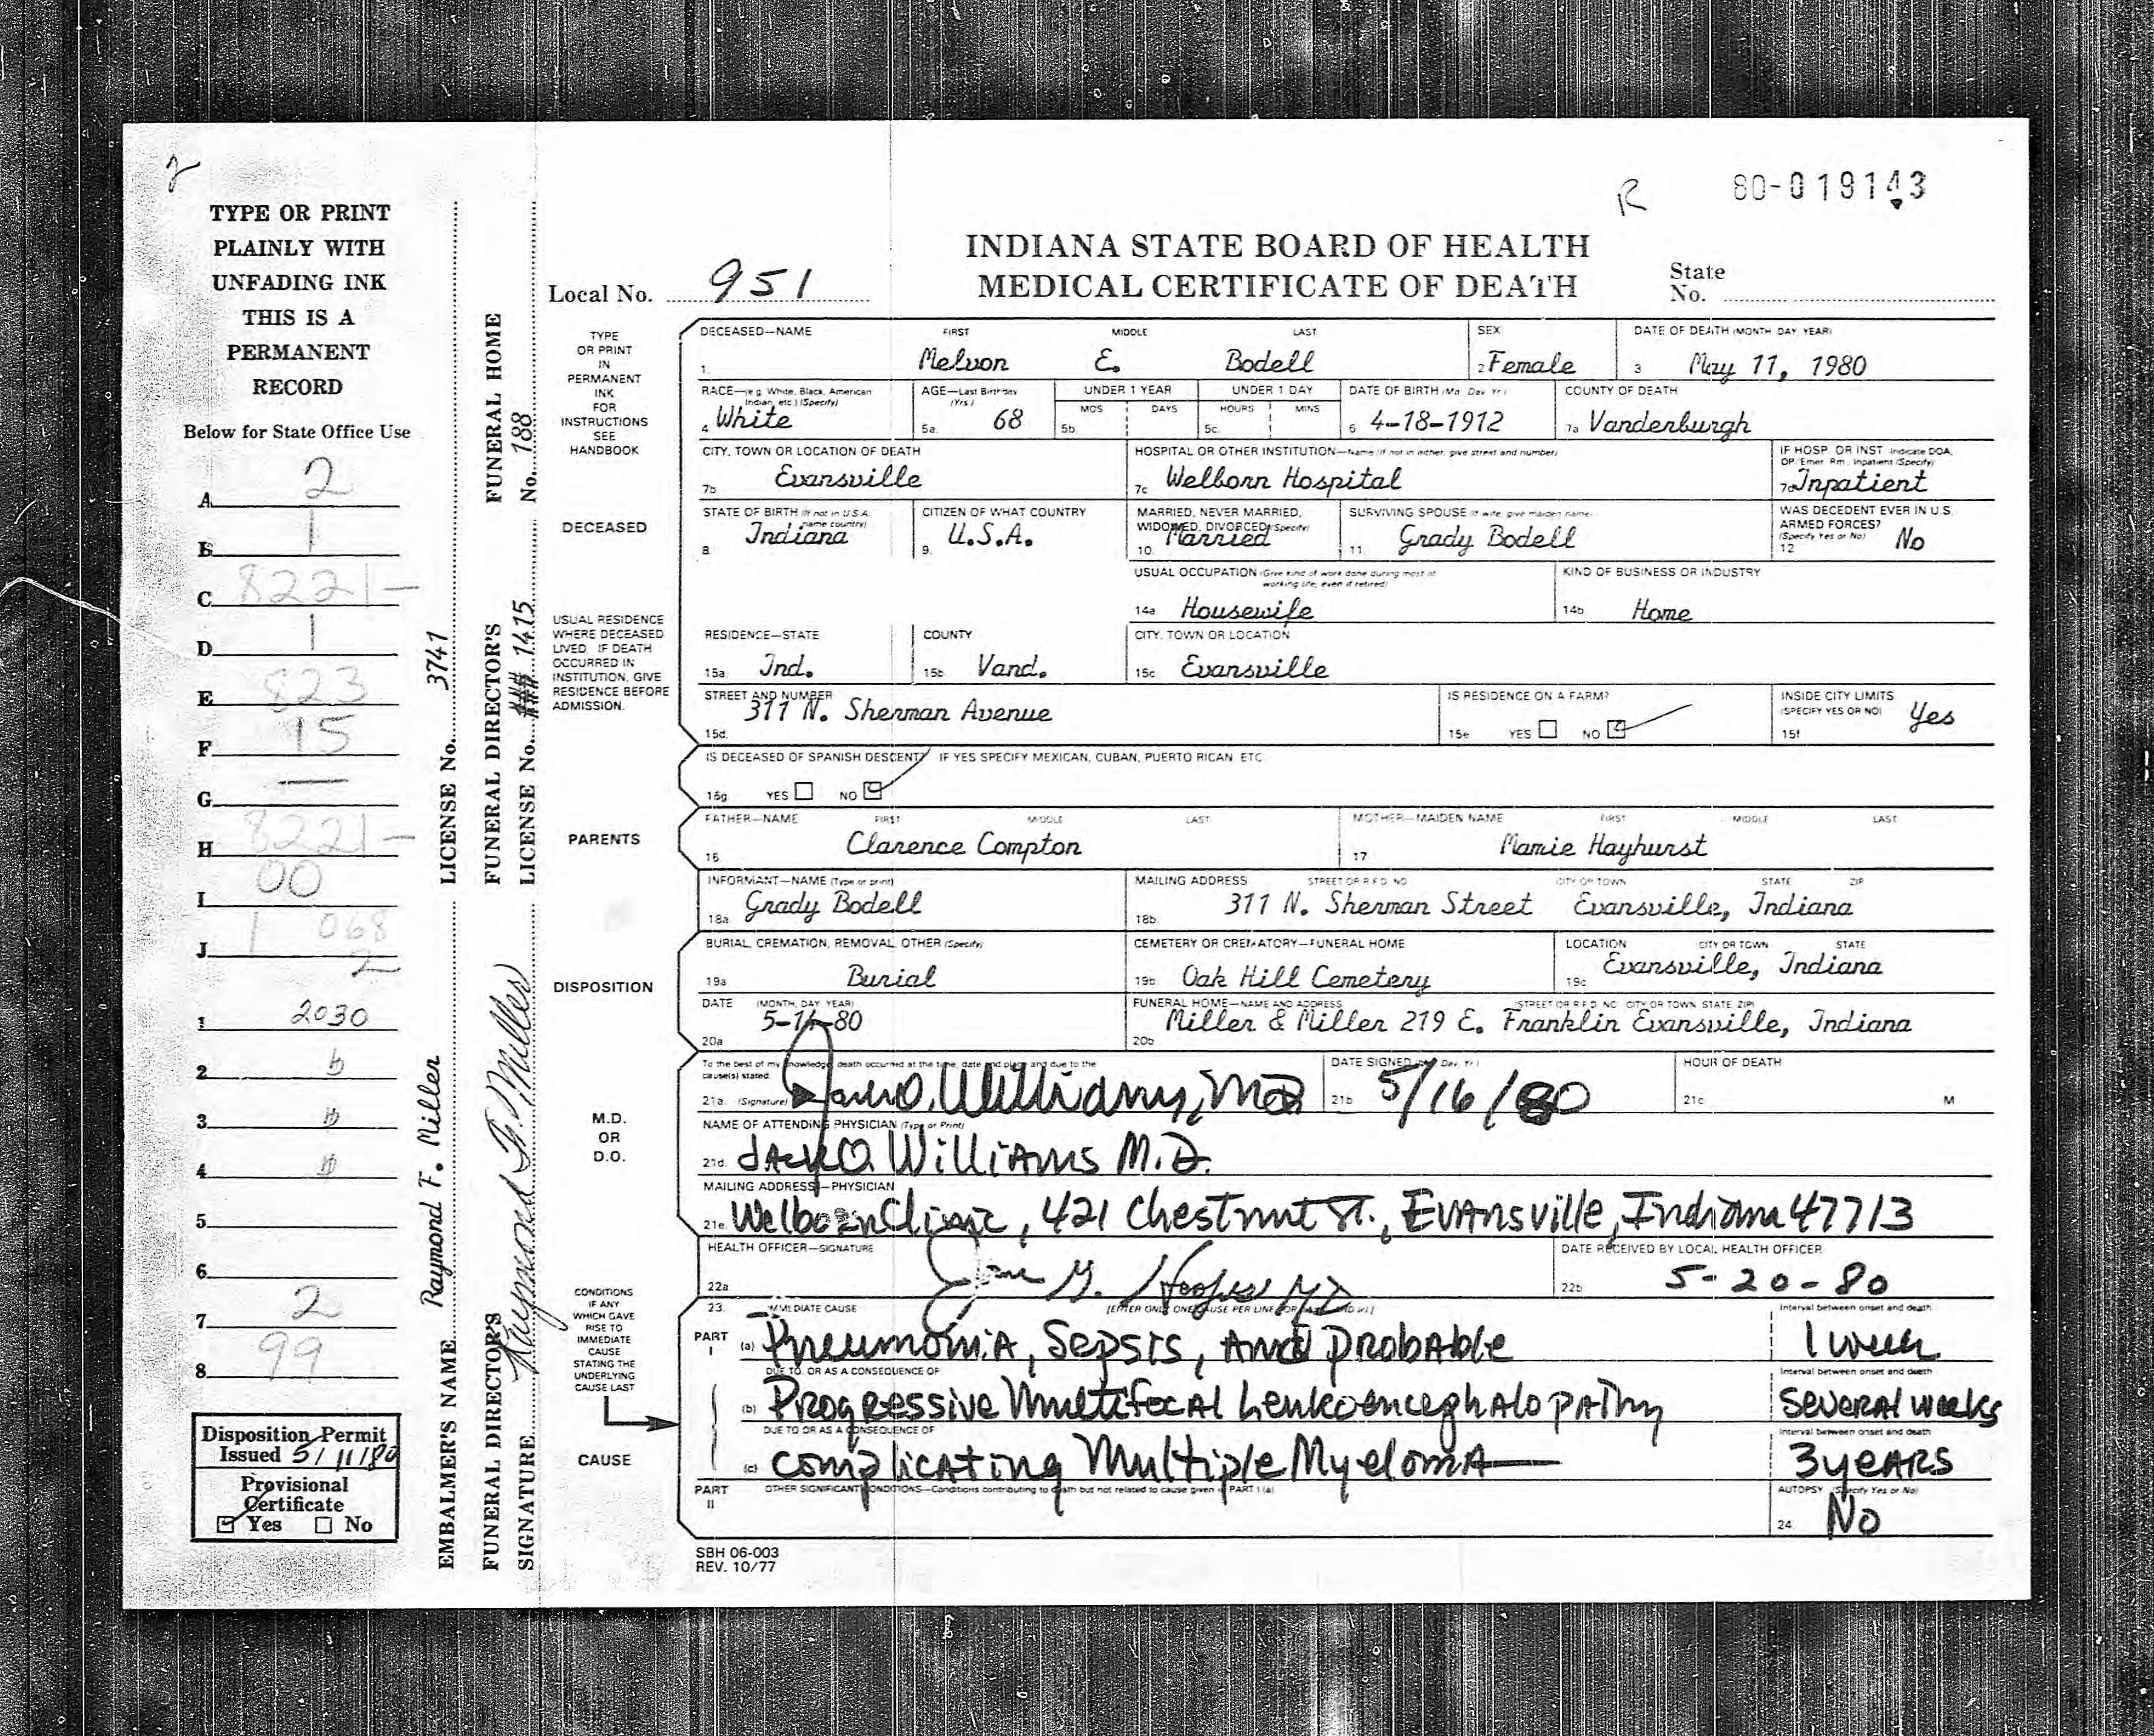 2
R 80-019143
TYPE OR PRINT
PLAINLY WITH
UNFADING INK
THIS IS A
PERMANENT
RECORD
Below for State Office Use
A. 2
B. 1
C. 8221-
D. 1
E. 823
F. 15
G. —
H. 8221-
I. 00
J. 1 068
2
1. 2030
2.
3.
4.
5.
6.
7. 2
8. 99
Disposition Permit
Issued 5/11/80
Provisional
Certificate
Yes No
EMBALMER'S NAME Raymond F. Miller LICENSE No. 3741
FUNERAL DIRECTOR'S FUNERAL DIRECTOR'S FUNERAL HOME
SIGNATURE Raymond F. Miller LICENSE No. ### 1415 No. 188
INDIANA STATE BOARD OF HEALTH
Local No. 951 MEDICAL CERTIFICATE OF DEATH State No.
TYPE
OR PRINT
IN
PERMANENT
INK
FOR
INSTRUCTIONS
SEE
HANDBOOK
DECEASED—NAME FIRST MIDDLE LAST SEX DATE OF DEATH (MONTH DAY YEAR)
1. Melvon E. Bodell 2 Female 3 May 11, 1980
RACE—(e.g. White, Black, American Indian, etc.) (Specify) AGE—Last Birthday (Yrs.) UNDER 1 YEAR UNDER 1 DAY DATE OF BIRTH (Mo. Day Yr.) COUNTY OF DEATH
MOS DAYS HOURS MINS
4. White 5a. 68 5b. 5c. 6 4-18-1912 7a Vandenburgh
CITY, TOWN OR LOCATION OF DEATH HOSPITAL OR OTHER INSTITUTION—Name (If not in either, give street and number) IF HOSP. OR INST. Indicate DOA, OP/Emer. Rm., Inpatient (Specify)
7b Evansville 7c Welborn Hospital 7d Inpatient
DECEASED
STATE OF BIRTH (If not in U.S.A. name country) CITIZEN OF WHAT COUNTRY MARRIED, NEVER MARRIED, WIDOWED, DIVORCED (Specify) SURVIVING SPOUSE (If wife, give maiden name) WAS DECEDENT EVER IN U.S. ARMED FORCES? (Specify Yes or No)
8. Indiana 9. U.S.A. 10. Married 11. Grady Bodell 12 No
USUAL OCCUPATION (Give kind of work done during most of working life, even if retired) KIND OF BUSINESS OR INDUSTRY
14a. Housewife 14b Home
USUAL RESIDENCE
WHERE DECEASED
LIVED. IF DEATH
OCCURRED IN
INSTITUTION, GIVE
RESIDENCE BEFORE
ADMISSION.
RESIDENCE—STATE COUNTY CITY, TOWN OR LOCATION
15a. Ind. 15b Vand. 15c Evansville
STREET AND NUMBER IS RESIDENCE ON A FARM? INSIDE CITY LIMITS (SPECIFY YES OR NO)
15d. 311 N. Sherman Avenue 15e YES NO 15f Yes
IS DECEASED OF SPANISH DESCENT? IF YES SPECIFY MEXICAN, CUBAN, PUERTO RICAN ETC.
15g YES NO
PARENTS
FATHER—NAME FIRST MIDDLE LAST MOTHER—MAIDEN NAME FIRST MIDDLE LAST
16 Clarence Compton 17 Mamie Hayhurst
INFORMANT—NAME (Type or print) MAILING ADDRESS STREET OR R.F.D. NO CITY OR TOWN STATE ZIP
18a. Grady Bodell 18b. 311 N. Sherman Street Evansville, Indiana
DISPOSITION
BURIAL, CREMATION, REMOVAL, OTHER (Specify) CEMETERY OR CREMATORY—FUNERAL HOME LOCATION CITY OR TOWN STATE
19a Burial 19b Oak Hill Cemetery 19c Evansville, Indiana
DATE (MONTH, DAY, YEAR) FUNERAL HOME—NAME AND ADDRESS (STREET OR R.F.D. NO. CITY OR TOWN STATE, ZIP)
20a 20b Miller & Miller 219 E. Franklin Evansville, Indiana
M.D.
OR
D.O.
To the best of my knowledge, death occurred at the time, date and place and due to the cause(s) stated. DATE SIGNED (Mo. Day, Yr.) HOUR OF DEATH
21a. (Signature) Jack O. Williams, MD 21b 5/16/80 21c M
NAME OF ATTENDING PHYSICIAN (Type or Print)
21d. Jack O. Williams M.D.
MAILING ADDRESS—PHYSICIAN
21e. Welborn Clinic, 421 Chestnut St., Evansville, Indiana 47713
HEALTH OFFICER—SIGNATURE DATE RECEIVED BY LOCAL HEALTH OFFICER
22a 22b 5-20-80
CONDITIONS
IF ANY
WHICH GAVE
RISE TO
IMMEDIATE
CAUSE
STATING THE
UNDERLYING
CAUSE LAST
CAUSE
23. IMMEDIATE CAUSE [ENTER ONLY ONE CAUSE PER LINE FOR (a), (b), AND (c)] Interval between onset and death
PART I (a) Pneumonia, Sepsis, And Probable 1 week
DUE TO, OR AS A CONSEQUENCE OF Interval between onset and death
(b) Progressive Multifocal Leukoencephalopathy Several weeks
DUE TO OR AS A CONSEQUENCE OF Interval between onset and death
(c) complicating Multiple Myeloma 3 years
PART II OTHER SIGNIFICANT CONDITIONS—Conditions contributing to death but not related to cause given in PART I (a) AUTOPSY (Specify Yes or No)
24 No
SBH 06-003
REV. 10/77